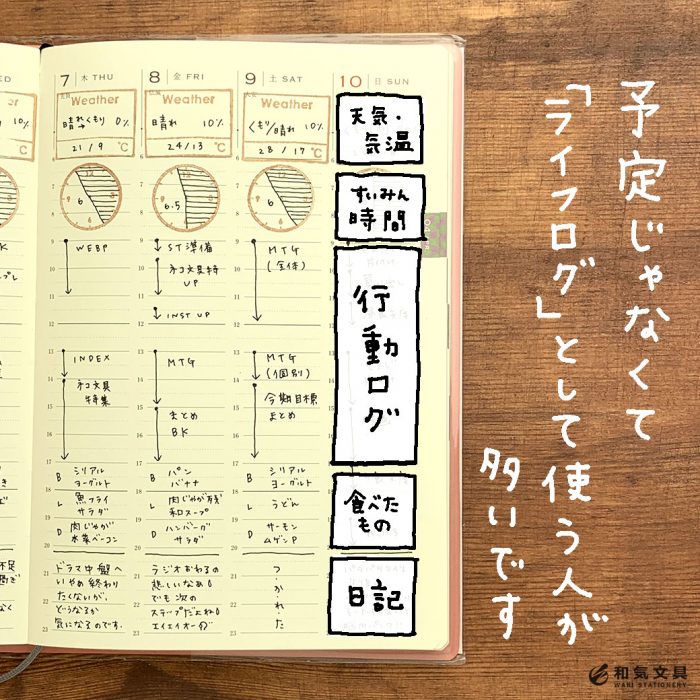 予定じゃなくて
「ライフログ」として使う人が
多いです
7 木 THU
Weather
晴れ→くもり 0%
21 / 9 ℃
6
WEBP
INDEX
ネコ文具
特集
B シリアル
ヨーグルト
L 魚フライ
サラダ
D 肉じゃが
水菜ベーコン
ドラマ中盤へ
いやぁ終わり
たくないが、
どうなるか
気になるのです。
8 金 FRI
Weather
晴れ 10%
24 / 13 ℃
6.5
ST準備
ネコ文具特
UP
INST UP
MTG
まとめ
BK
B パン
バナナ
L 肉じゃが残
和スープ
D ハンバーグ
サラダ
ラジオおわるの
悲しいなぁ
でも次の
ステップだよね
エイエイオー
9 土 SAT
Weather
くもり/晴れ 10%
28 / 17 ℃
6
MTG
(全体)
MTG
(個別)
今期目標
まとめ
B シリアル
ヨーグルト
L うどん
D サーモン
ムゲンP
つ・か・れ・た
10 日 SUN
天気・
気温
すいみん
時間
行動ログ
食べた
もの
日記
和気文具
WAKI STATIONERY